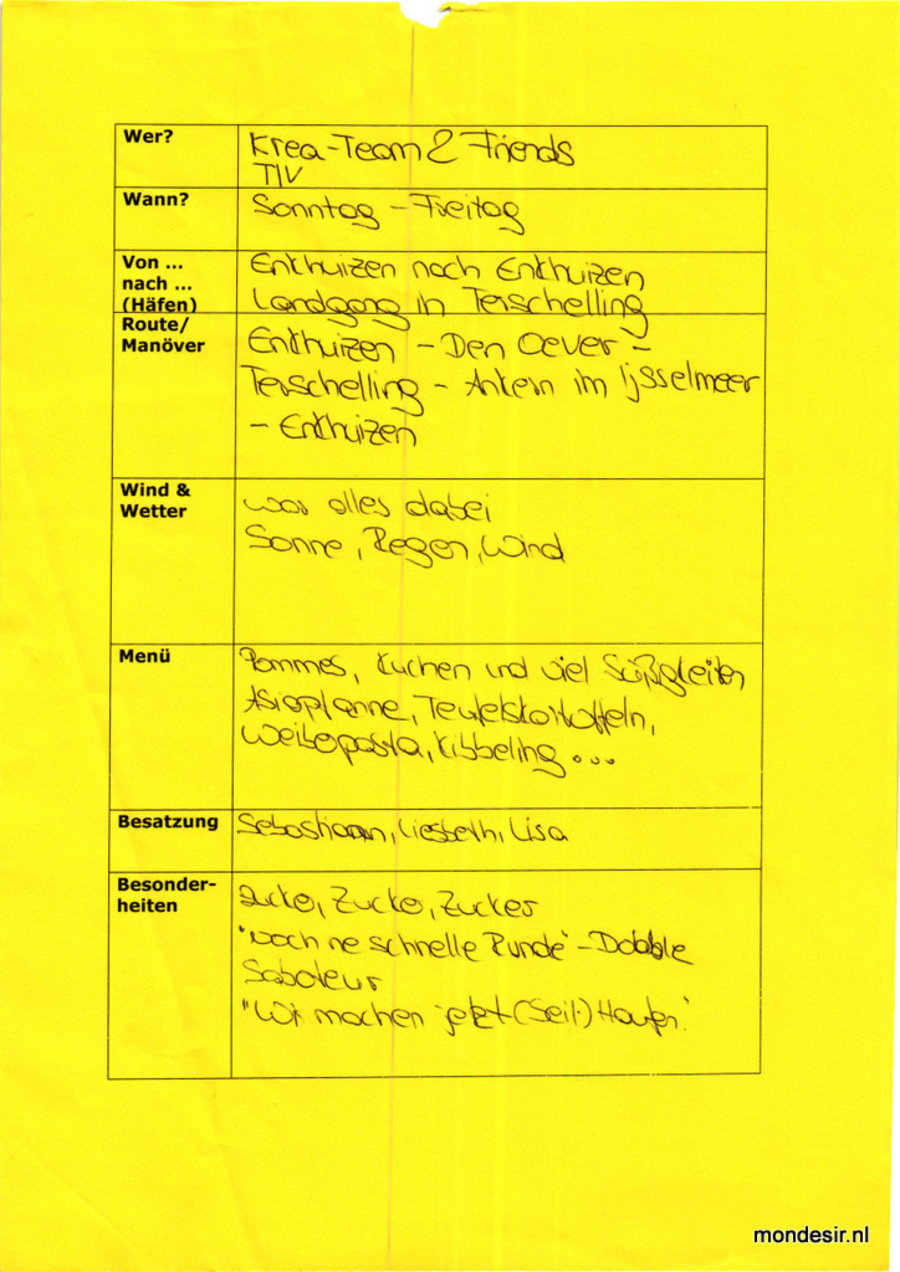 Wer?
Krea-Team & Friends
TIV
Wann?
Sonntag - Freitag
Von ...
nach ...
(Häfen)
Enkhuizen nach Enkhuizen
Landgang in Terschelling
Route/
Manöver
Enkhuizen - Den Oever -
Terschelling - Ankern im Ijsselmeer
- Enkhuizen
Wind &
Wetter
war alles dabei
Sonne, Regen, Wind
Menü
Pommes, Kuchen und viel Süßigkeiten
Asiapfanne, Teufelskartoffeln,
Weiberpasta, Kibbeling...
Besatzung
Sebastiaan, Liesbeth, Lisa
Besonder-
heiten
Zucko, Zucko, Zucker
"Noch ne schnelle Runde" - Dobble
Saboteur
"Wir machen jetzt (Seil-) Haufen."
mondesir.nl